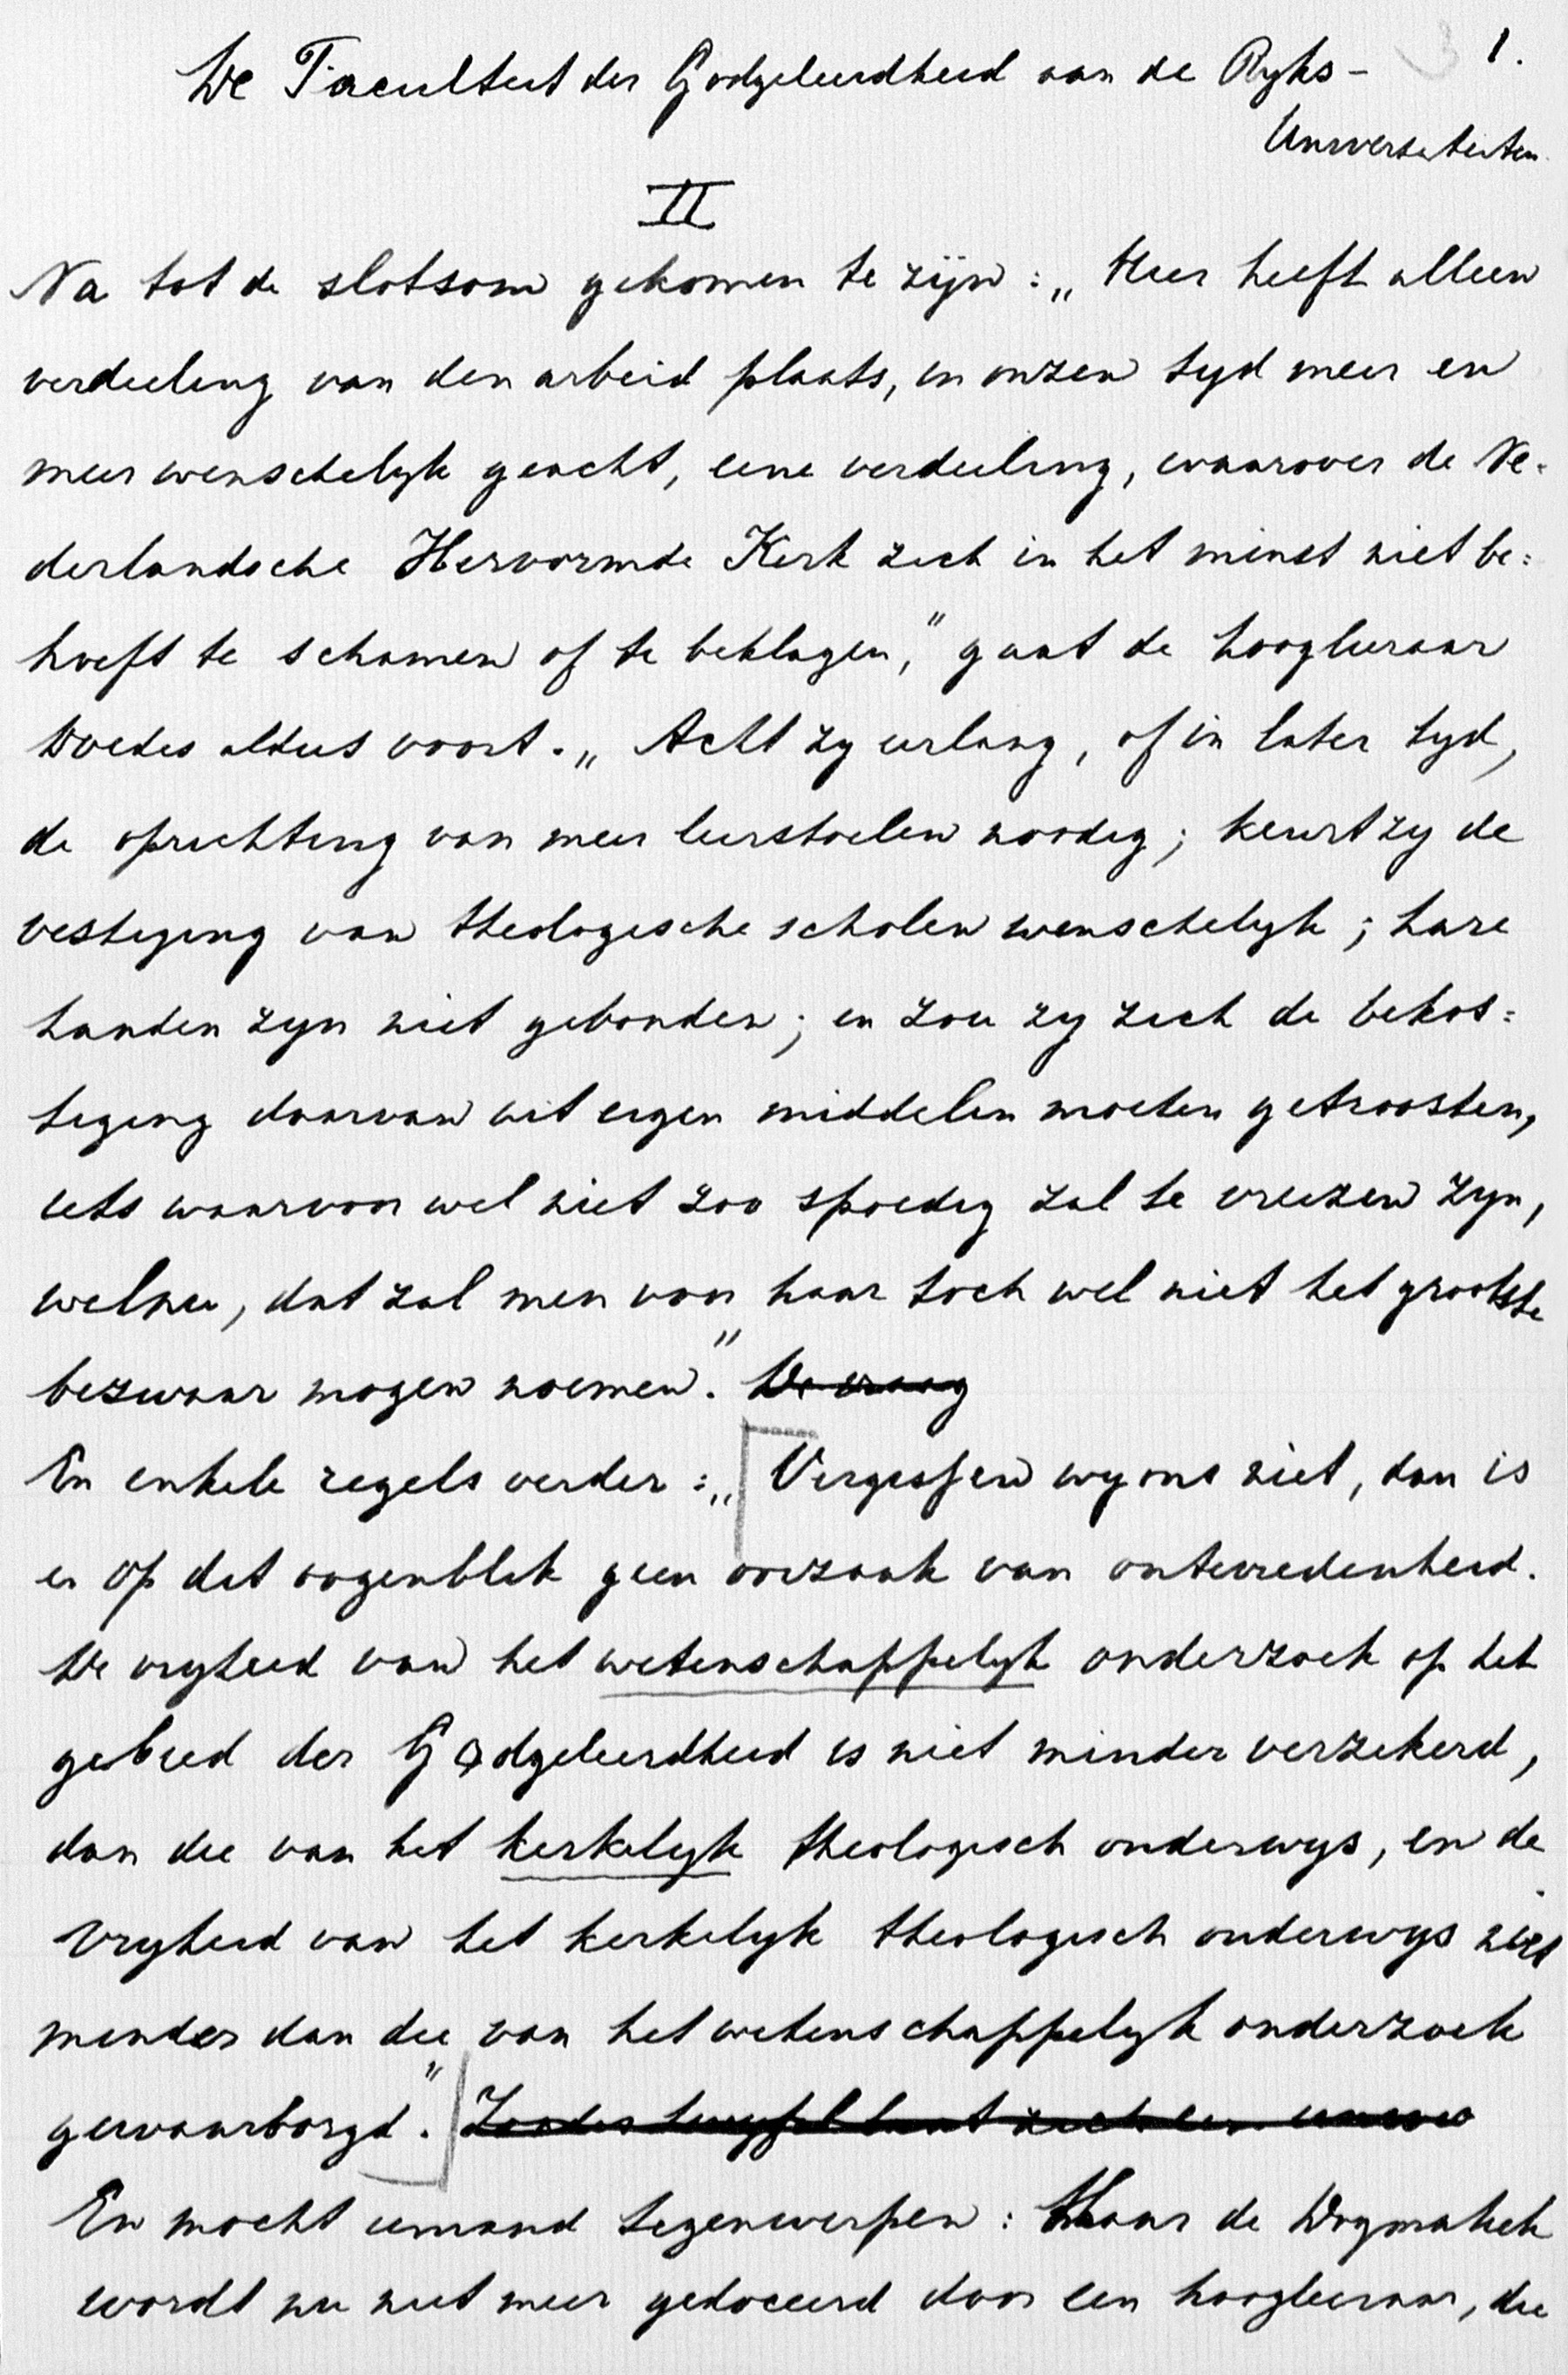 1.
De Faculteit der Godgeleerdheid aan de Ryks-
Universiteiten.
II
Na tot de slotsom gekomen te zijn: „Hier heeft alleen
verdeeling van den arbeid plaats, in onzen tyd meer en
meer wenschelyk geacht, eene verdeeling, waarover de Ne=
derlandsche Hervormde Kerk zich in het minst niet be=
hoeft te schamen of te beklagen," gaat de hoogleeraar
Doedes aldus voort. „Acht zy eerlang, of in later tyd,
de oprichting van meer leerstoelen noodig; keurt zy de
vestiging van theologische scholen wenschelyk; hare
handen zyn niet gebonden; en zou zy zich de bekos=
tiging daarvan uit eigen middelen moeten getroosten,
iets waarvoor wel niet zoo spoedig zal te vreezen zyn,
welnu, dat zal men voor haar toch wel niet het grootste
bezwaar mogen noemen." De vraag
En enkele regels verder: „Vergissen wy ons niet, dan is
er op dit oogenblik geen oorzaak van ontevredenheid.
De vryheid van het wetenschappelyk onderzoek op het
gebied der Godgeleerdheid is niet minder verzekerd,
dan die van het kerkelyk theologisch onderwys, en de
vryheid van het kerkelyk theologisch onderwys niet
minder dan die van het wetenschappelyk onderzoek
gewaarborgd." Zonder twyfel laat zich een
En mocht iemand tegenwerpen: Maar de Dogmatiek
wordt nu niet meer gedoceerd door een hoogleeraar, die